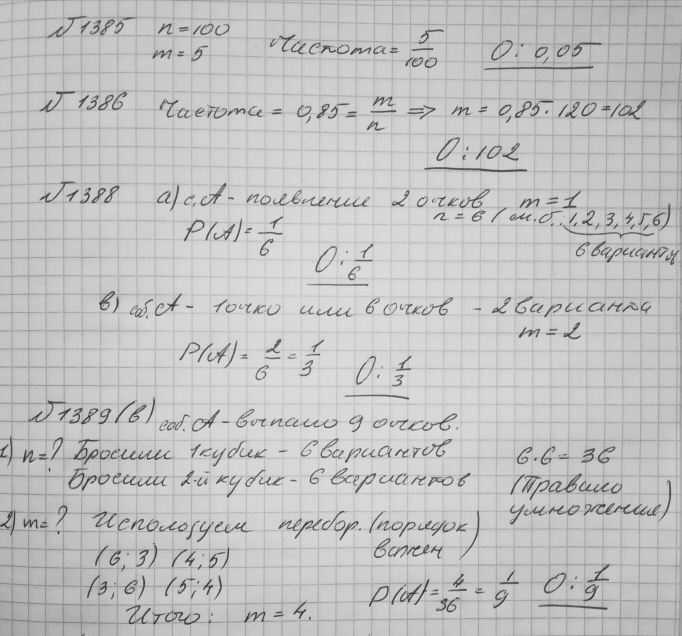 №1385 n=100
m=5 Частота= 5/100 О: 0,05
№1386 Частота = 0,85 = m/n => m = 0,85·120=102
О: 102
№1388 а) с.А - появление 2 очков m=1
n=6 (м.б. 1,2,3,4,5,6)
6 варианты
P(A)= 1/6
О: 1/6
в) соб. А - 1 очко или 6 очков - 2 варианта
m=2
P(A)= 2/6 = 1/3 О: 1/3
№1389(в) соб. А - выпало 9 очков.
1) n=? Бросили 1 кубик - 6 вариантов 6·6= 36
Бросили 2-й кубик - 6 вариантов (Правило умножения)
2) m=? Используем перебор. (порядок важен)
(6;3) (4;5)
(3;6) (5;4)
P(A)= 4/36 = 1/9 О: 1/9
Итого: m=4.